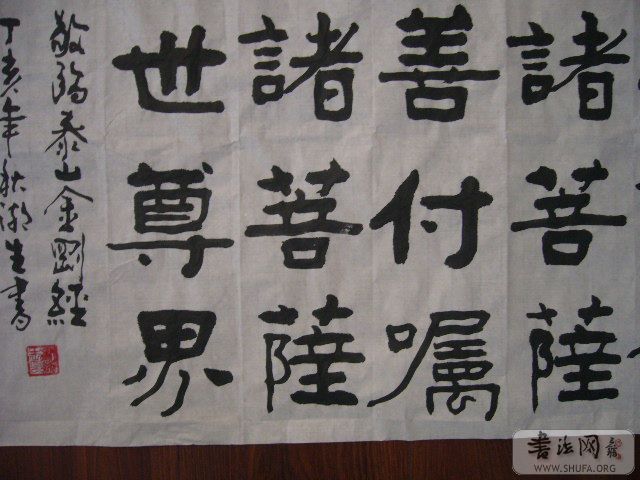 諸菩薩
善付囑
諸菩薩
世尊界
敬臨泰山金剛經
丁亥年秋湖生書
书法网
WWW.SHUFA.ORG